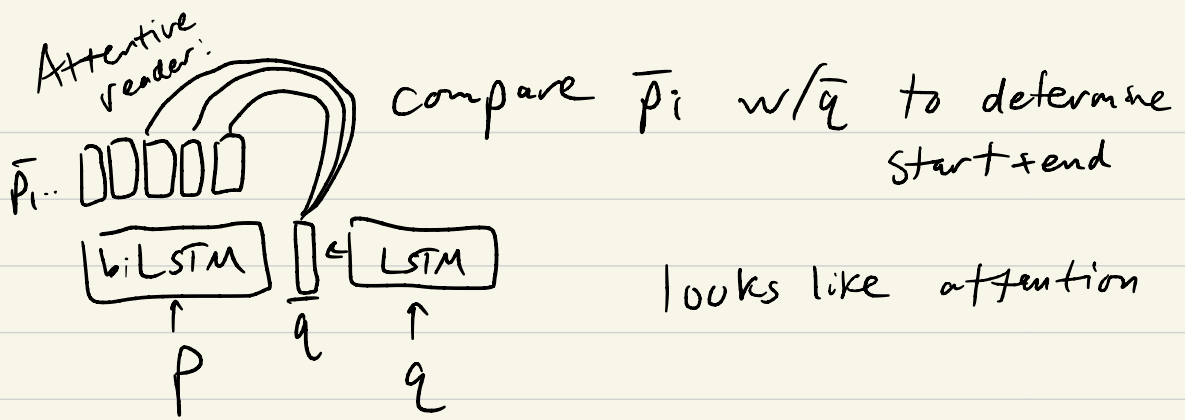 Attentive
reader:
compare p̄i w/q̄ to determine
start + end
p̄i..
biLSTM
LSTM
looks like attention
q̄
p
q